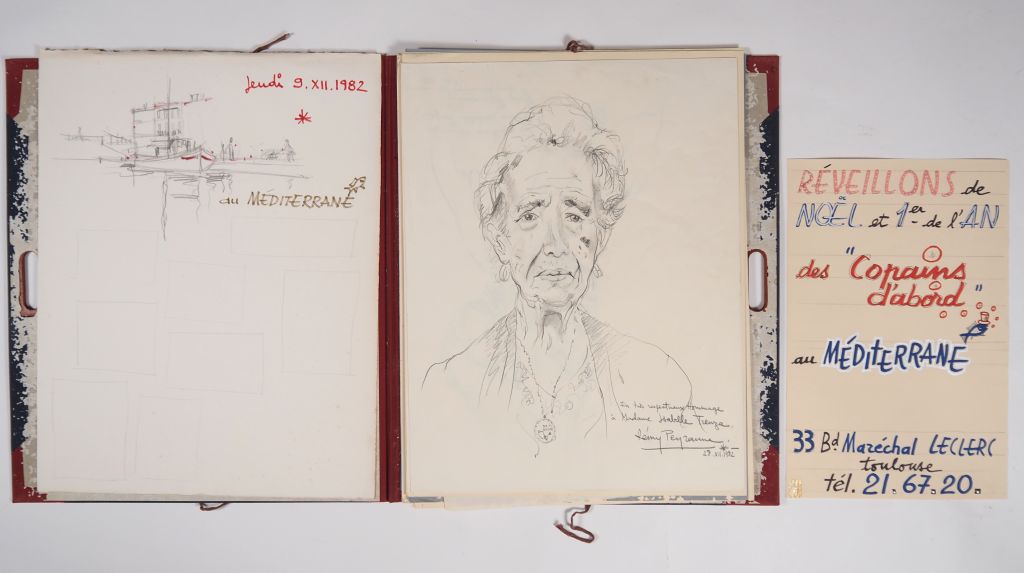 Jeudi 9.XII.1982
au MÉDITERRANÉ
En très respectueux hommage
à Madame Isabelle
Rémy Peyranne
29.XII.1982
RÉVEILLONS de
NOËL et 1er de l'AN
des "Copains
d'abord"
au MÉDITERRANÉ
33 Bd Maréchal LECLERC
toulouse
tél. 21.67.20.